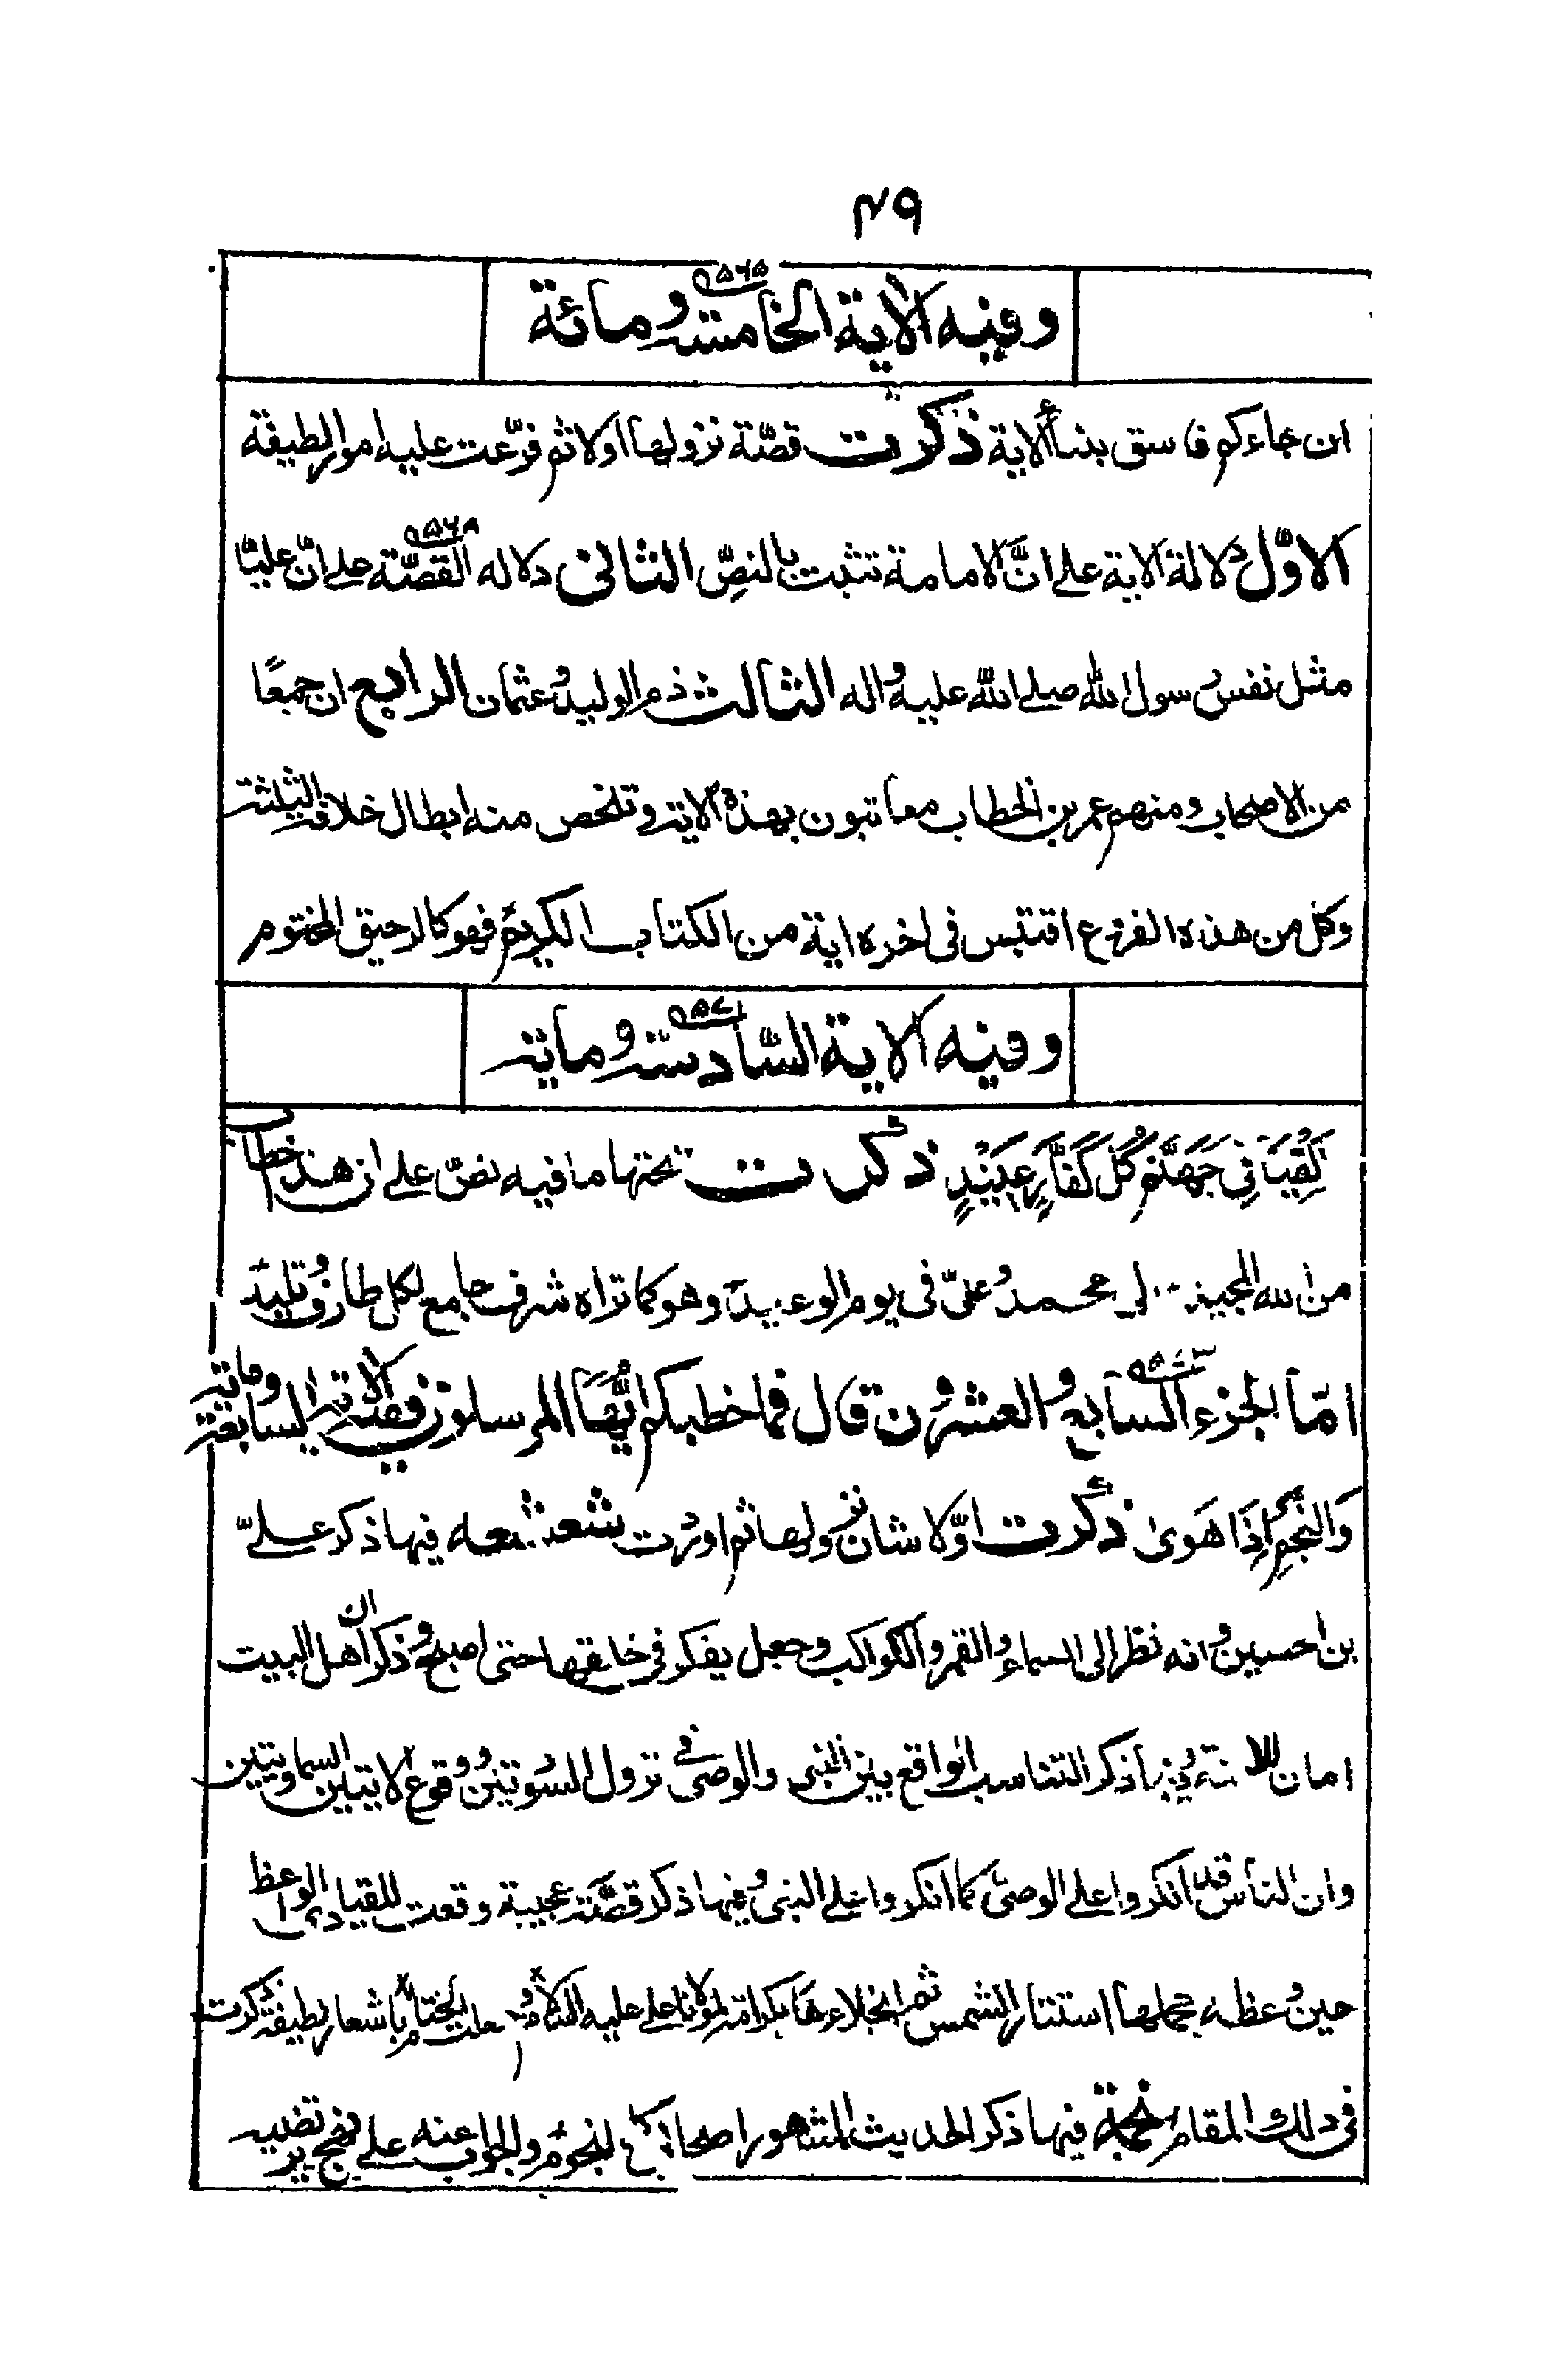 ٤٩
وفيه الاية الخامسة ومائة
٥٦٥
ان جاءكم فاسق بنبأ الاية ذكرت قصّة نزولها اولا ثم فرّعت عليه امورا لطيفة
الاوّل دلالة الاية على انّ الامامة تثبت بالنصّ الثانى دلاله القصّة على انّ عليّا
مثل نفس رسول الله صلى الله عليه واله الثالث ذم الوليد وعثمان الرابع ان جمعًا
من الاصحاب ومنهم عمر بن الخطاب معاتبون بهذه الاية وتلخص منه ابطال خلافة الثلثة
وكل من هذه الفروع اقتبس فى اخره اية من الكتاب الكريم فهو كالرحيق المختوم
وفيه الاية السّادسة وماية
اَلْقِيَا فِي جَهَنَّمَ كُلَّ كَفَّارٍ عَنِيْدٍ ذكرت تحتها ما فيه نصّ على ان هذا خطاب
من الله المجيد الى محمد وعلىّ فى يوم الوعيد وهو كما تراه شرف جامع لكل طارف وتليد
امّا الجزء السابع والعشرون قال فما خطبكم ايُّها المرسلون ففيه الاية السابعة وماية
وَالنَّجْمِ اِذَا هَوىٰ ذكرت اوّلا شان نزولها ثم اوردت شعشعه فيها ذكر علىّ
بن الحسين وانه نظر الى السماء والقمر والكواكب وجعل يفكر فى خلقها حتى اصبح وذكر ان اهل البيت
امان للامة وفيها ذكر التناسب الواقع بين النبى والوصى فى نزول السورتين ووقوع الايتين السماويتين
وان الناس قد انكروا على الوصى كما انكروا على النبى وفيها ذكر قصّة عجيبة وقعت الواعظ
حين وعظه مجملها استتار الشمس ثم انجلاءها بكرامة لمولانا على عليه السلام وجعلت الختام باشعار لطيفة ذكرت
فى ذلك المقام نجمة فيها ذكر الحديث المشهور اصحابى كالنجوم والجواب عنه على نهج